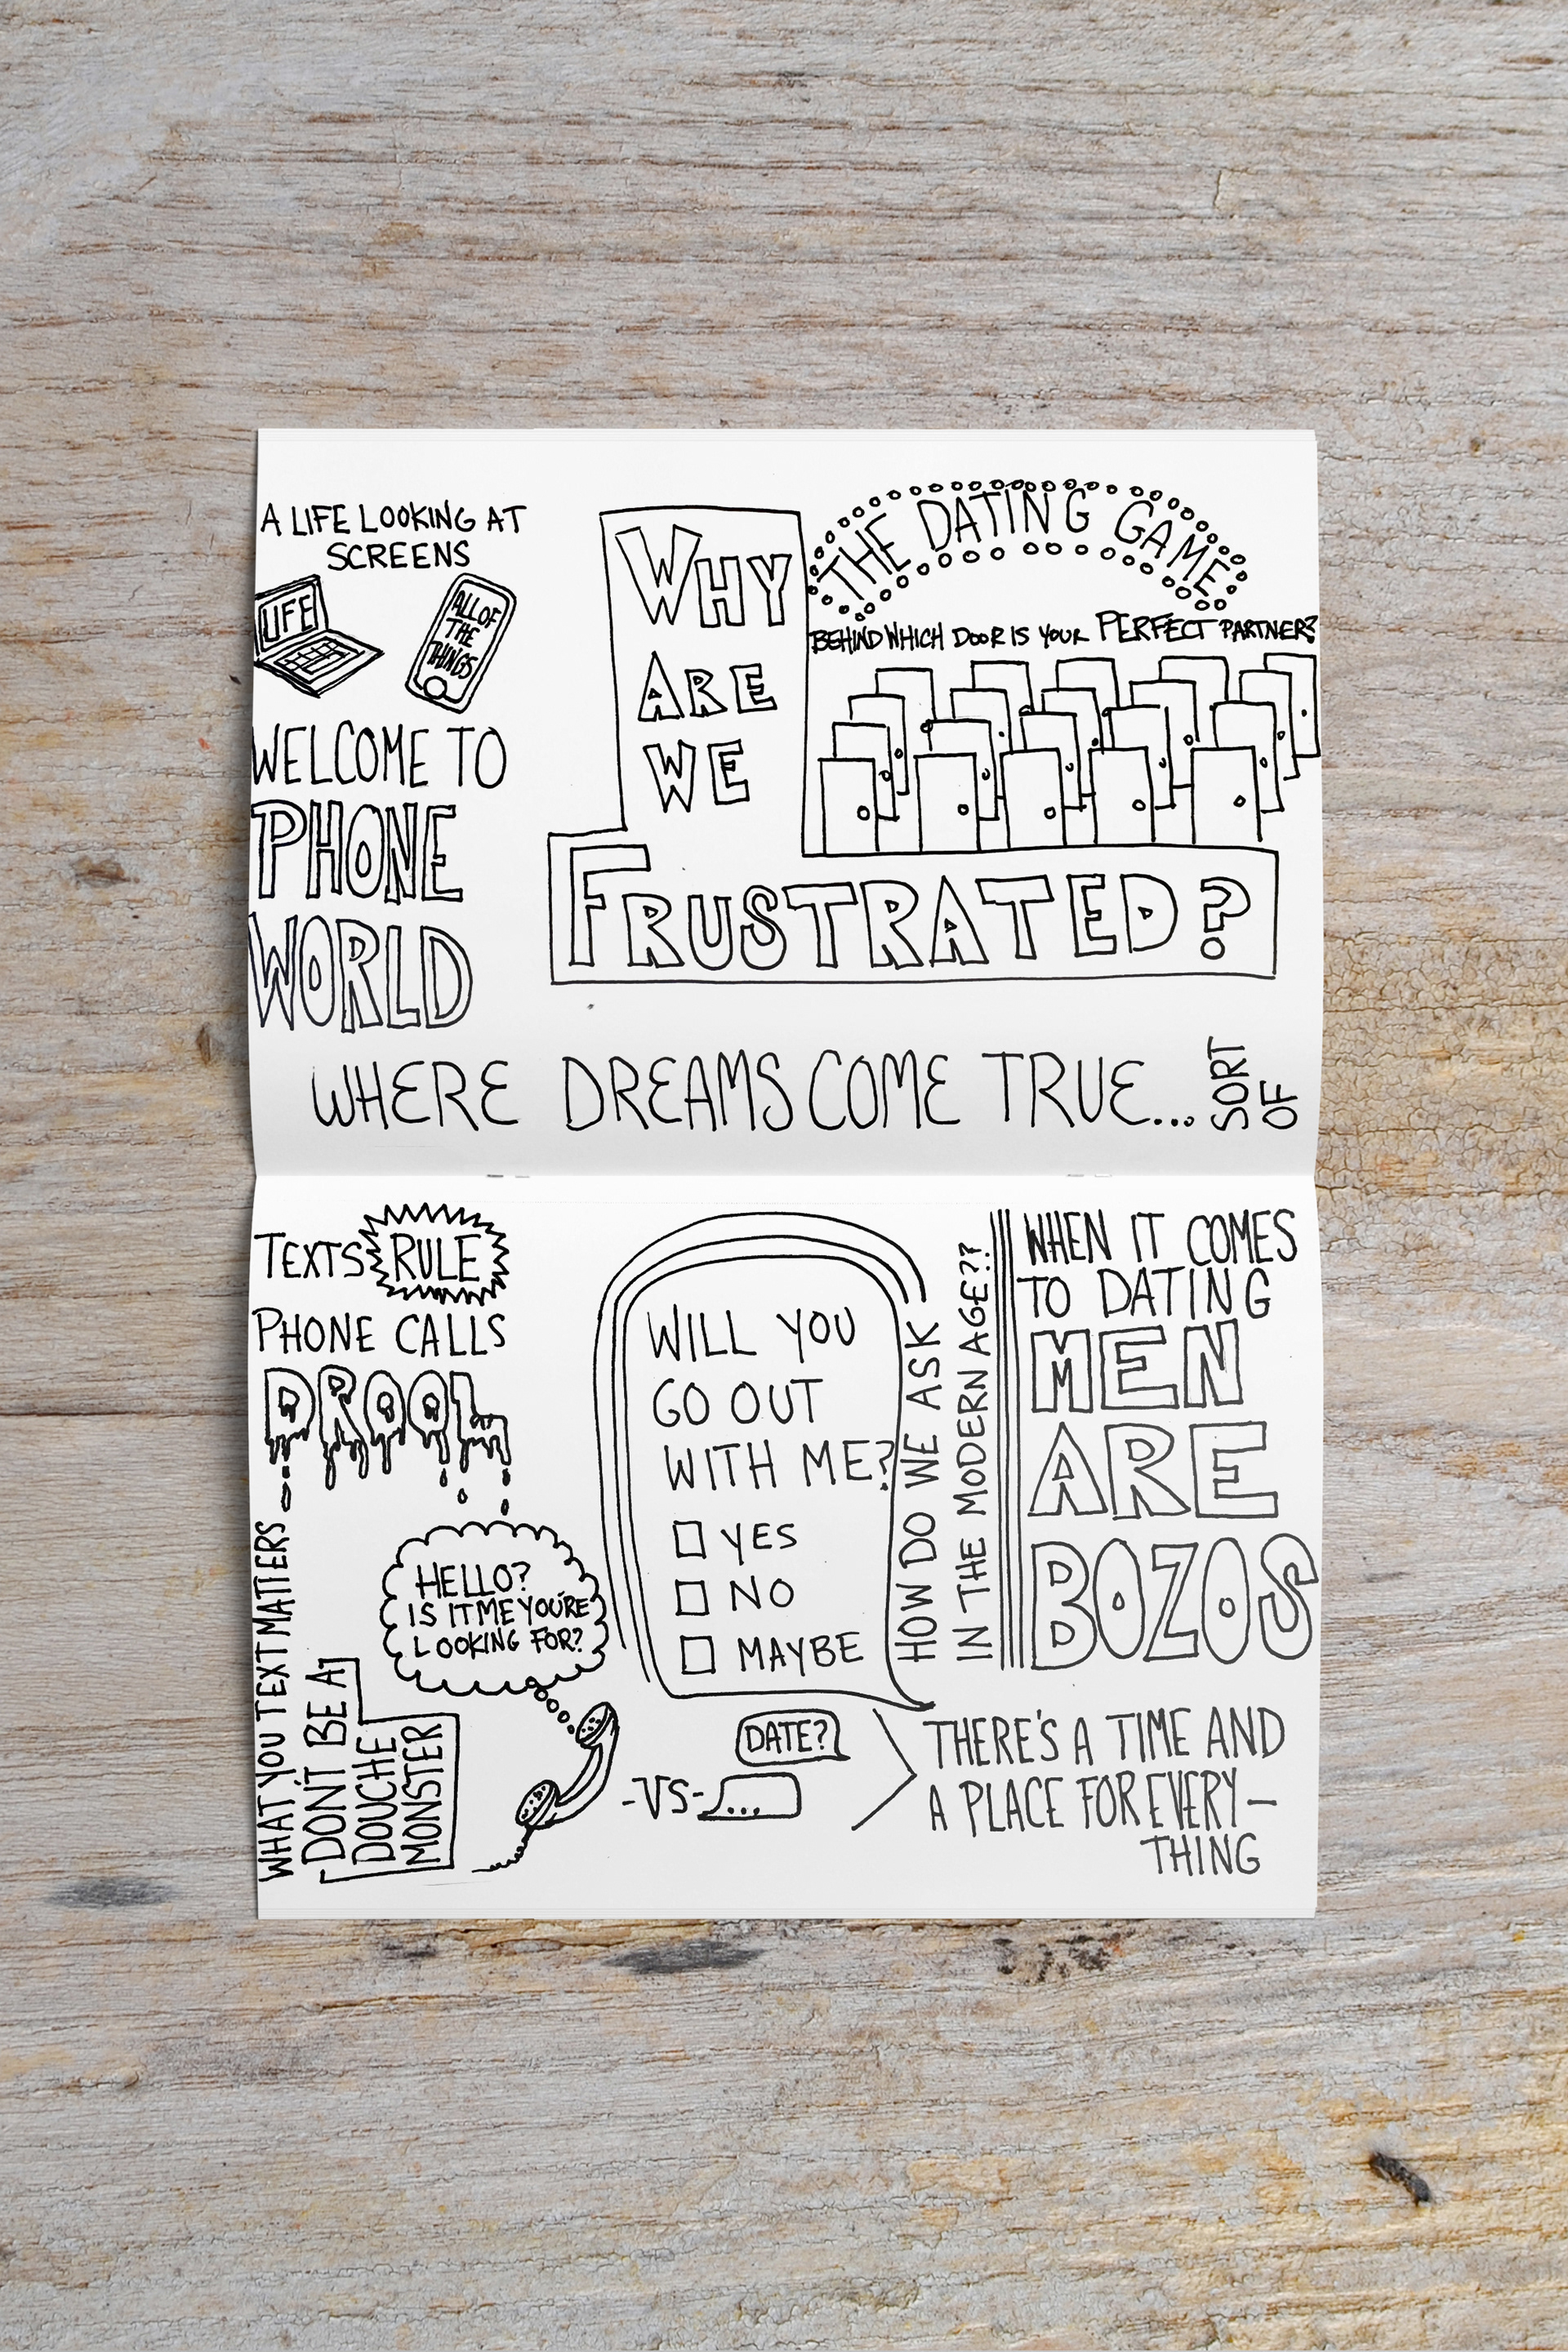 A LIFE LOOKING AT
SCREENS
LIFE
ALL OF
THE
THINGS
WELCOME TO
PHONE
WORLD
WHY
ARE
WE
FRUSTRATED?
THE DATING GAME
BEHIND WHICH DOOR IS YOUR PERFECT PARTNER?
WHERE DREAMS COME TRUE...
SORT
OF
TEXTS RULE
PHONE CALLS
DROOL
WHAT YOU TEXT MATTERS
DON'T BE A
DOUCHE
MONSTER
HELLO?
IS IT ME YOU'RE
LOOKING FOR?
WILL YOU
GO OUT
WITH ME?
YES
NO
MAYBE
HOW DO WE ASK
IN THE MODERN AGE??
WHEN IT COMES
TO DATING
MEN
ARE
BOZOS
-VS-
DATE?
...
THERE'S A TIME AND
A PLACE FOR EVERY-
THING